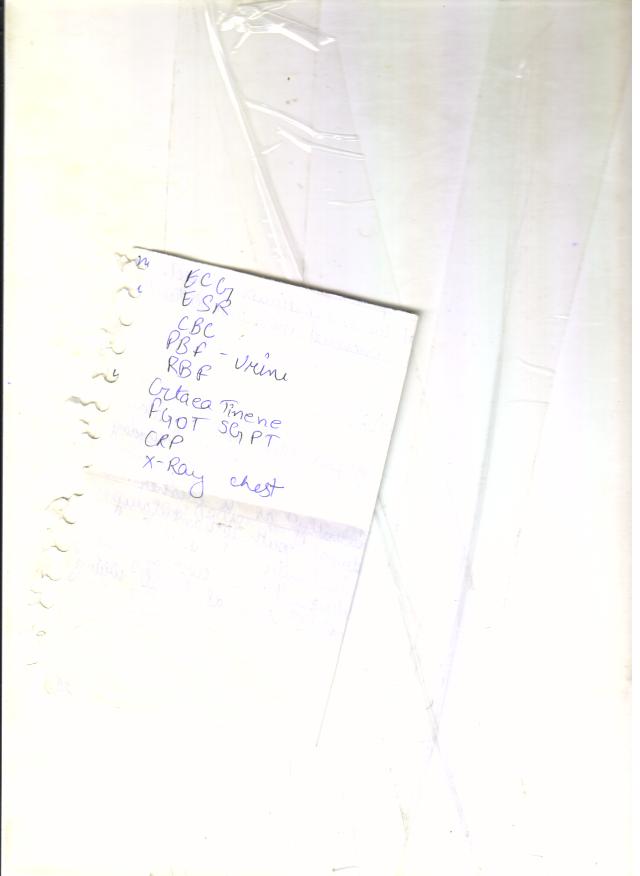 ECG
ESR
CBC
PBf - Urine
RBf
Crtaea Tinene
fGOT SGPT
CRP
X-Ray chest